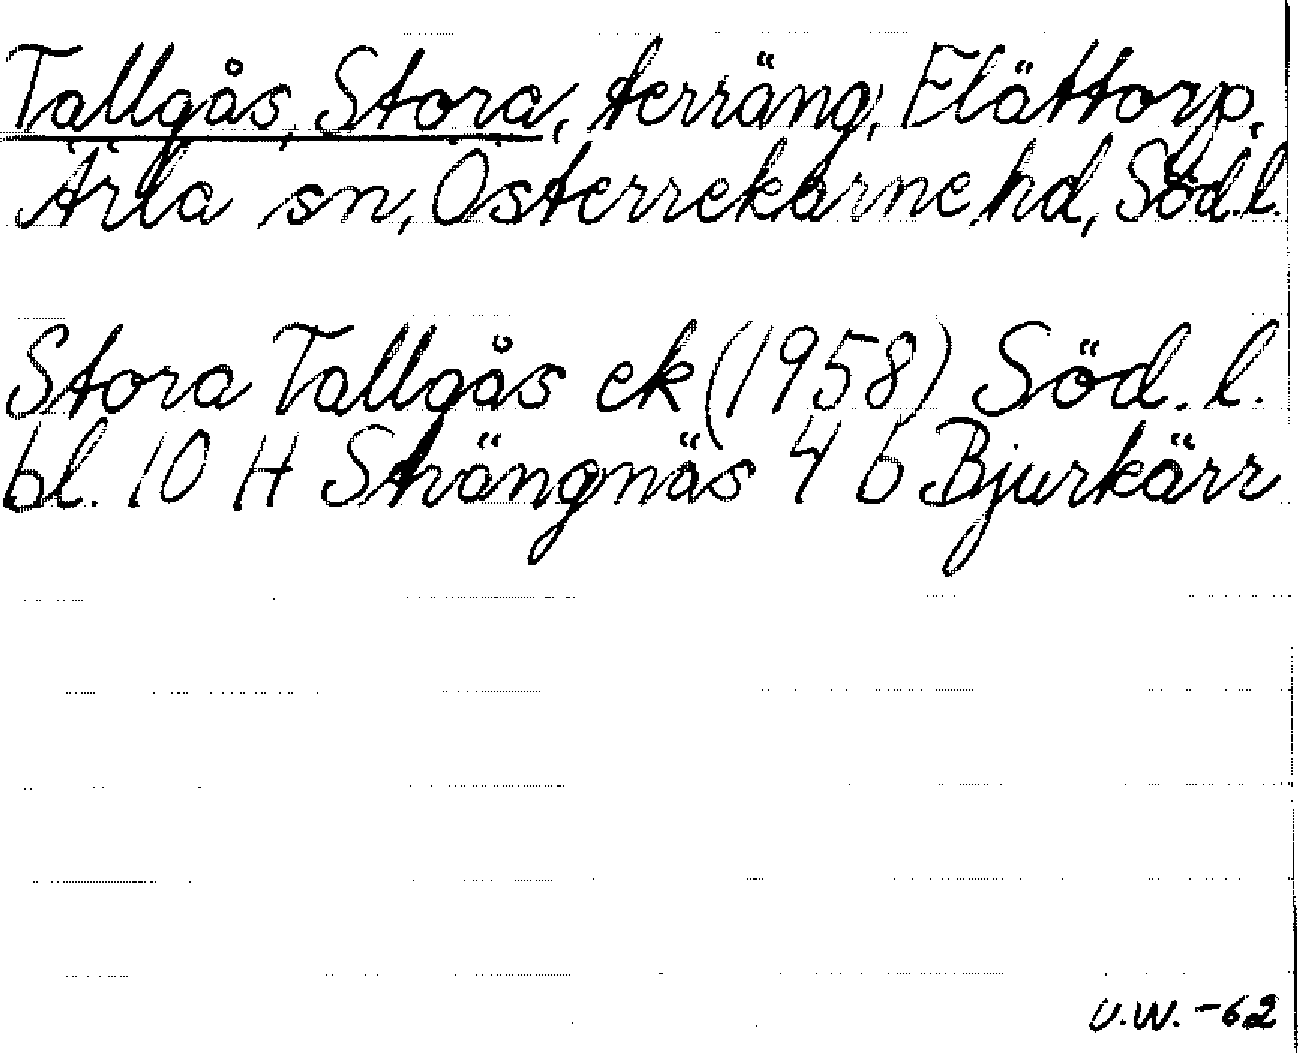 Tallgås, Stora, terräng, Flättorp,
Ärla sn, Österrekarne hd, Söd.l.
Stora Tallgås ek (1958) Söd. l.
bl. 10 H Strängnäs 4 b Bjurkärr
U.W. -62